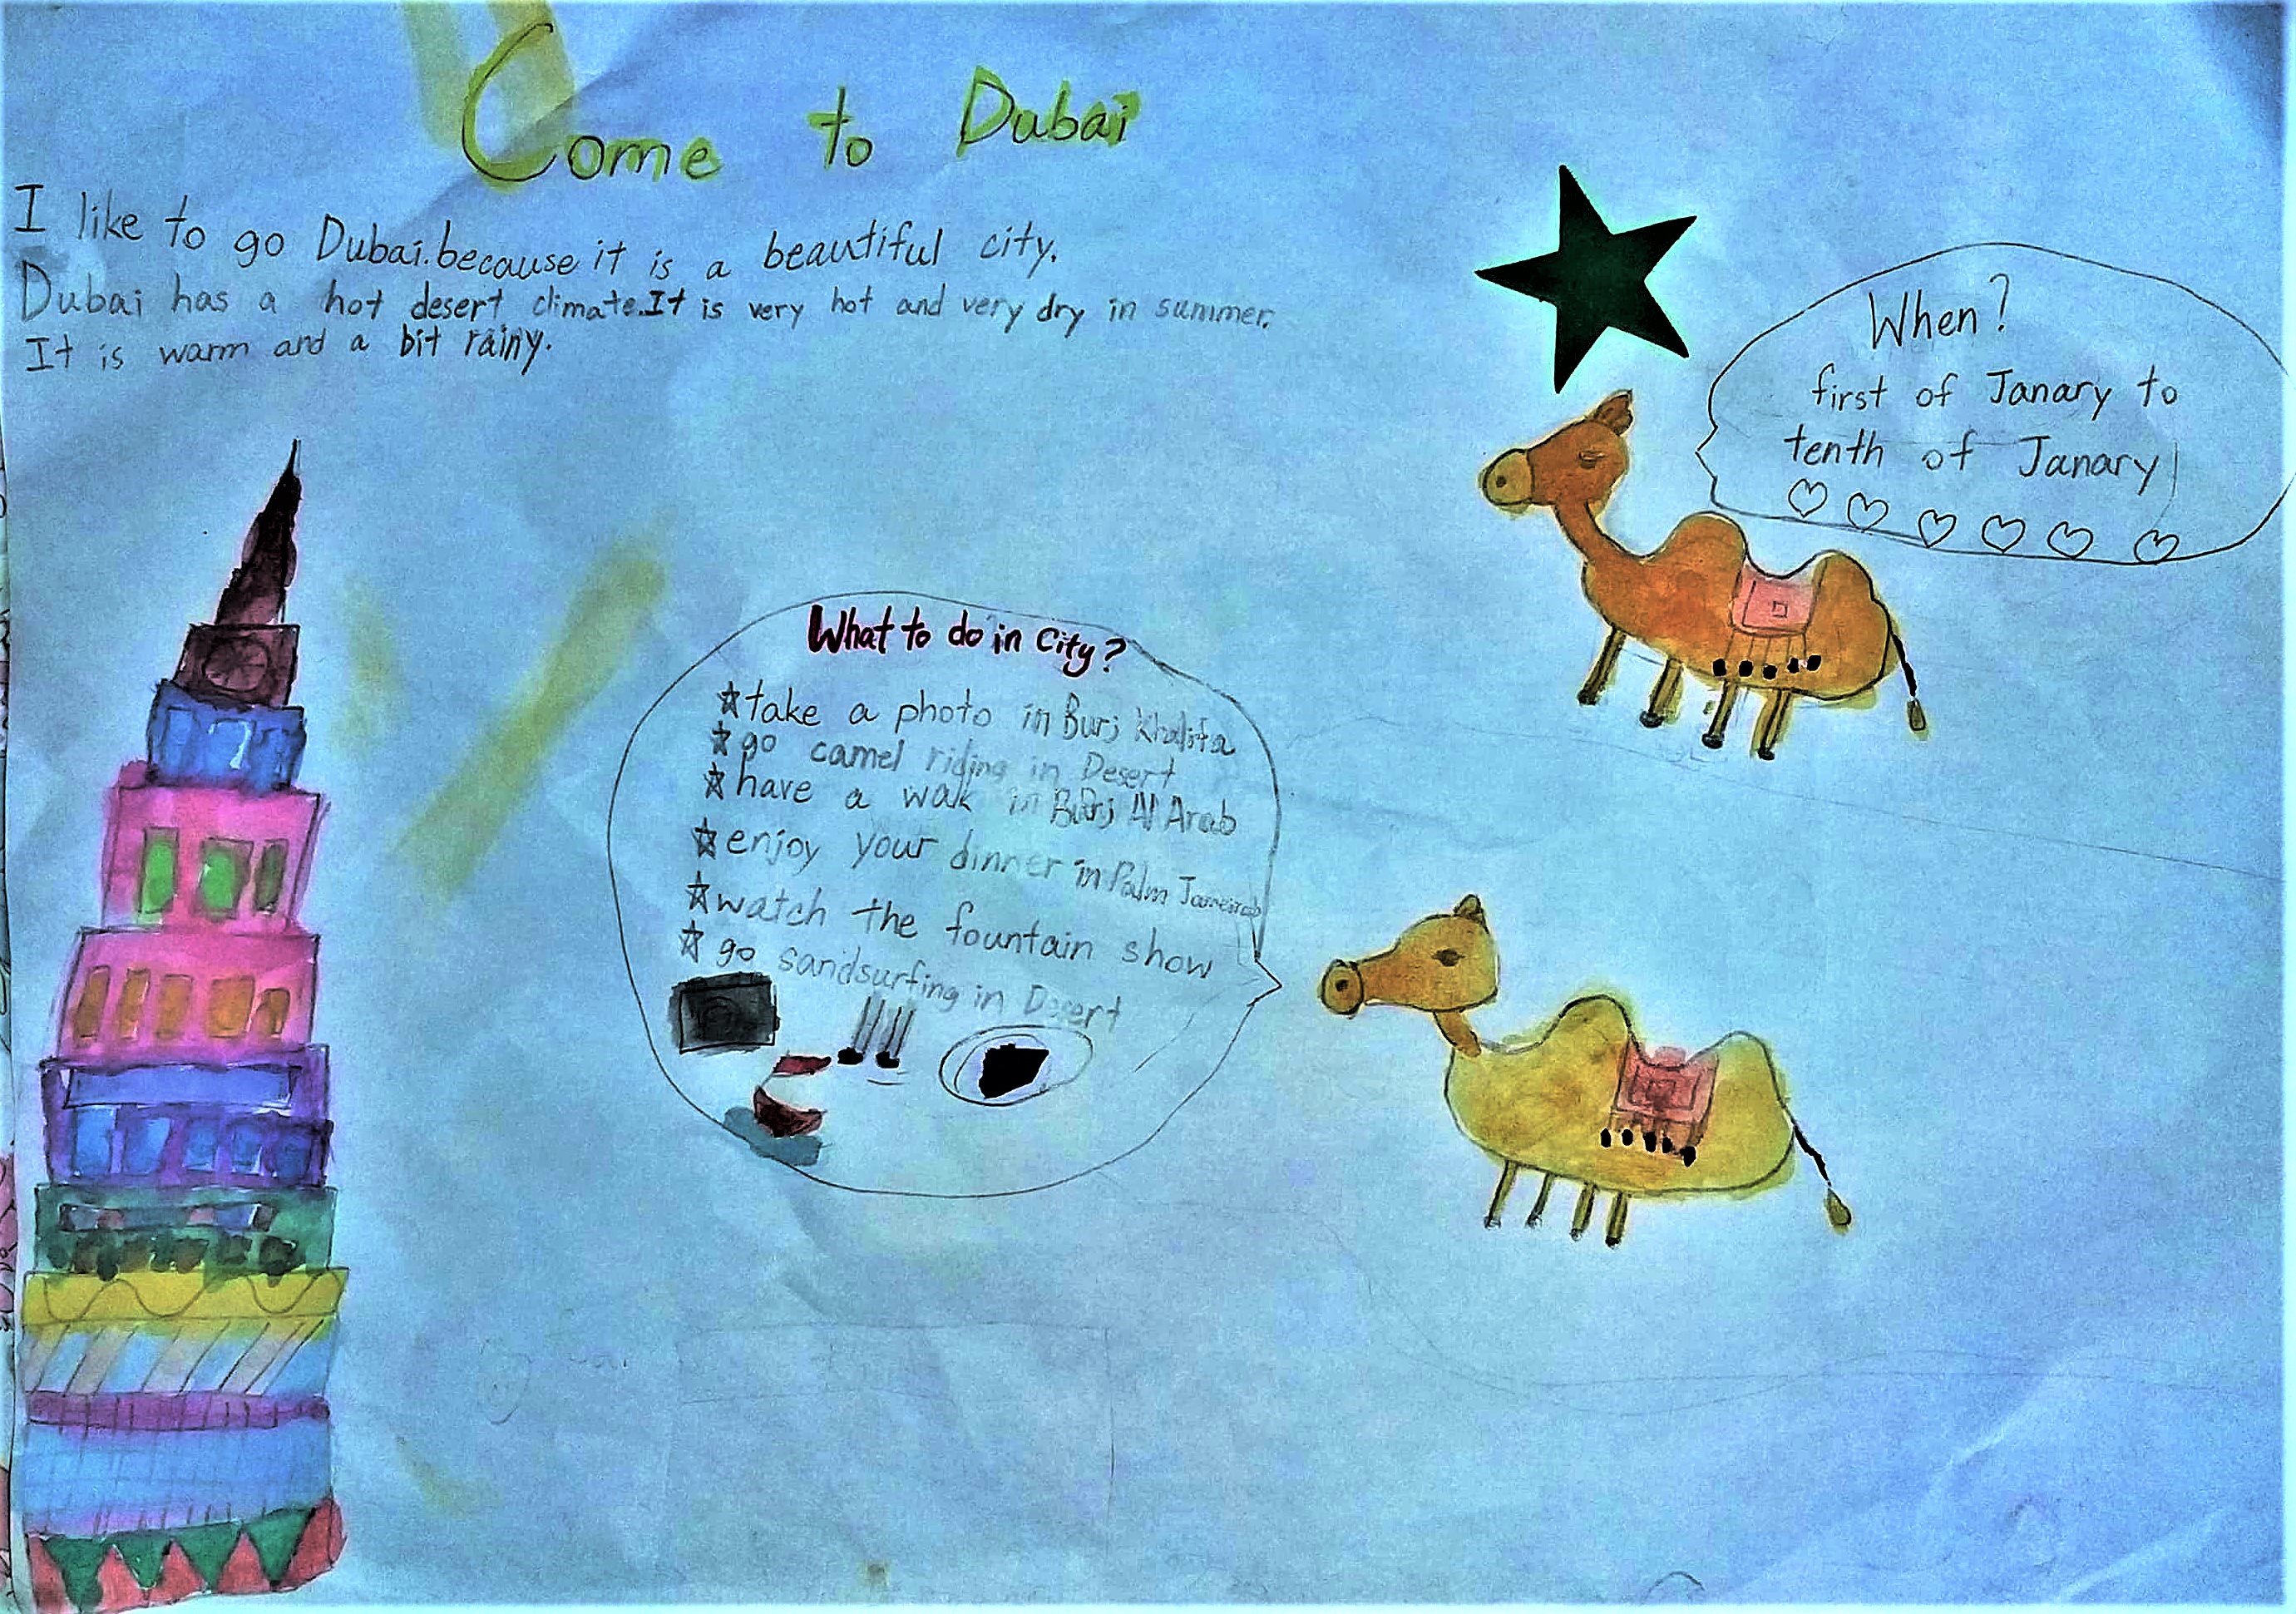 Come to Dubai
I like to go Dubai.because it is a beautiful city.
Dubai has a hot desert climate.It is very hot and very dry in summer.
It is warm and a bit rainy.
When?
first of Janary to
tenth of Janary
What to do in City?
take a photo in Burj Khalifa
go camel riding in Desert
have a wak in Burj Al Arab
enjoy your dinner in Palm
watch the fountain show
go sandsurfing in Desert